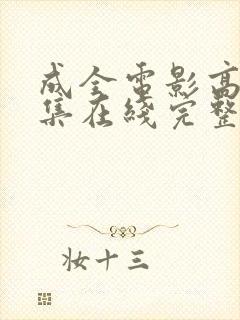 成全电影高
集在线完整
妆十三